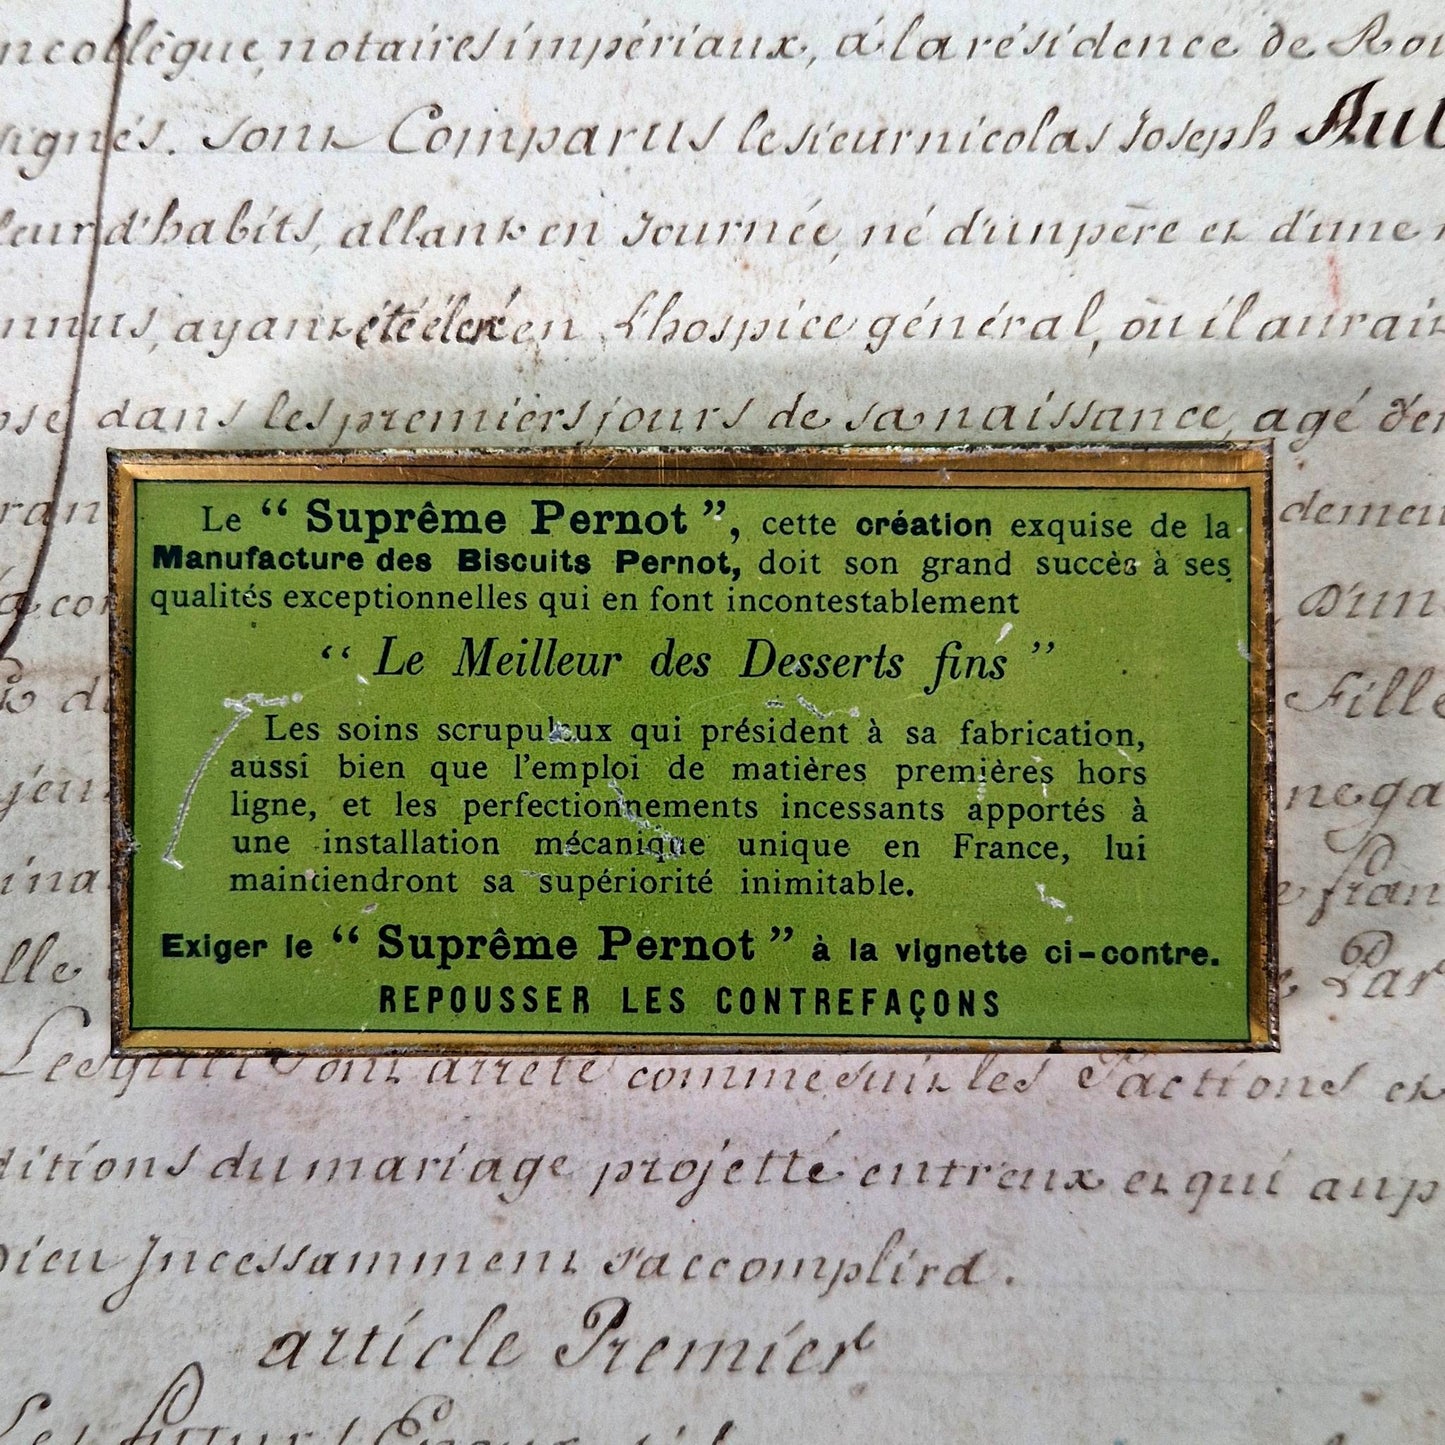 collègue, notaires impériaux, à la résidence de
signés. sont Comparus le sieur nicolas Joseph
d'habits, allant en Journée, né d'un père et d'une
ayant été élevé en L'hospice général, où il aurait
dans les premiers jours de sa naissance, agé
Le “ Suprême Pernot ”, cette création exquise de la
Manufacture des Biscuits Pernot, doit son grand succès à ses
qualités exceptionnelles qui en font incontestablement
“ Le Meilleur des Desserts fins ”
Les soins scrupuleux qui président à sa fabrication,
aussi bien que l'emploi de matières premières hors
ligne, et les perfectionnements incessants apportés à
une installation mécanique unique en France, lui
maintiendront sa supériorité inimitable.
Exiger le “ Suprême Pernot ” à la vignette ci-contre.
REPOUSSER LES CONTREFAÇONS
D'un
Fille
Lesquels ont arrêté comme suit les Pactions et
du mariage projetté entreux et qui
Dieu Incessamment s'accomplira.
article Premier